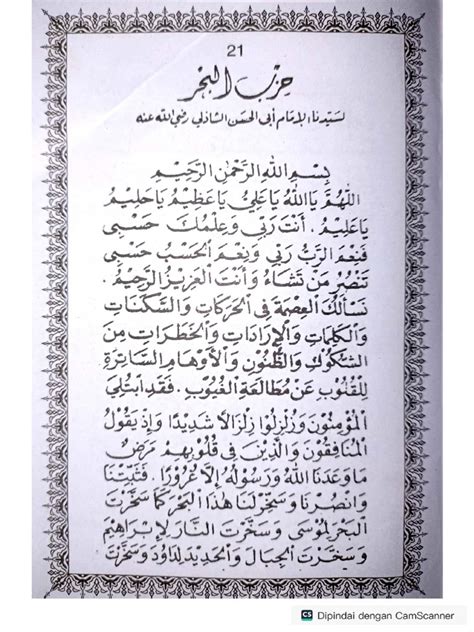 21
حِزْبُ الْبَحْرِ
لسَيّدنا الإمَام أبي الحسَن الشاذلي رَضي الله عنه
بِسْمِ اللهِ الرَّحْمٰنِ الرَّحِيْمِ
اَللّٰهُمَّ يَا اَللهُ يَا عَلِيُّ يَا عَظِيْمُ يَا حَلِيْمُ
يَا عَلِيْمُ . أَنْتَ رَبِّي وَعِلْمُكَ حَسْبِي
فَنِعْمَ الرَّبُّ رَبِّي وَنِعْمَ الْحَسْبُ حَسْبِي
تَنْصُرُ مَنْ تَشَاءُ وَأَنْتَ الْعَزِيْزُ الرَّحِيْمُ .
نَسْأَلُكَ الْعِصْمَةَ فِي الْحَرَكَاتِ وَالسَّكَنَاتِ
وَالْكَلِمَاتِ وَالْإِرَادَاتِ وَالْخَطَرَاتِ مِنَ
الشُّكُوْكِ وَالظُّنُوْنِ وَالْأَوْهَامِ السَّاتِرَةِ
لِلْقُلُوْبِ عَنْ مُطَالَعَةِ الْغُيُوْبِ . فَقَدِ ابْتُلِيَ
الْمُؤْمِنُوْنَ وَزُلْزِلُوْا زِلْزَالًا شَدِيْدًا وَإِذْ يَقُوْلُ
الْمُنَافِقُوْنَ وَالَّذِيْنَ فِي قُلُوْبِهِمْ مَرَضٌ
مَا وَعَدَنَا اللهُ وَرَسُوْلُهُ إِلَّا غُرُوْرًا . فَثَبِّتْنَا
وَانْصُرْنَا وَسَخِّرْ لَنَا هٰذَا الْبَحْرَ كَمَا سَخَّرْتَ
الْبَحْرَ لِمُوْسَى وَسَخَّرْتَ النَّارَ لِإِبْرَاهِيْمَ
وَسَخَّرْتَ الْجِبَالَ وَالْحَدِيْدَ لِدَاوُدَ وَسَخَّرْتَ
CS Dipindai dengan CamScanner